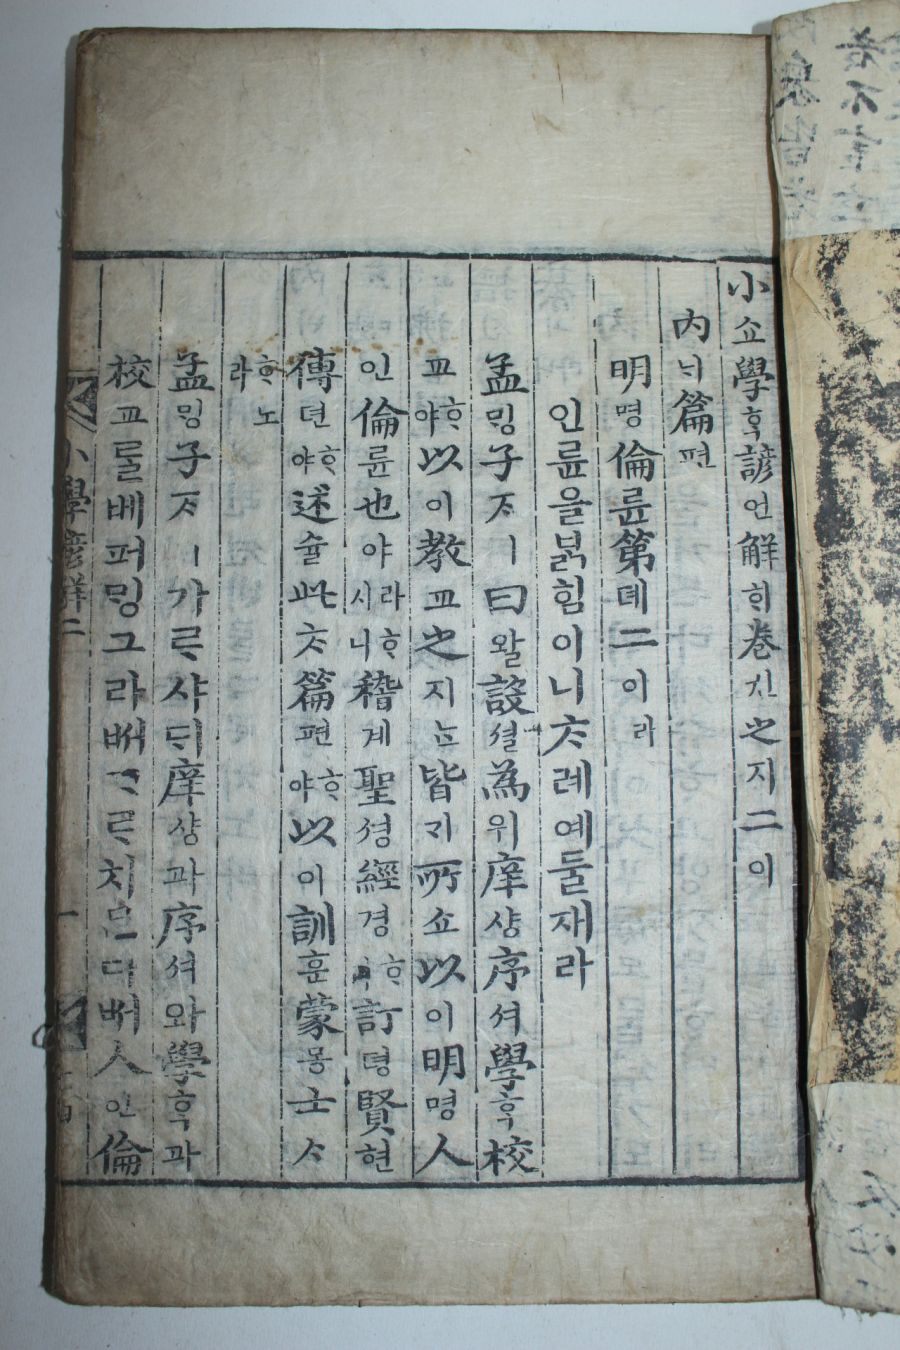 小쇼學ᄒᆞᆨ諺언解ᄒᆡ巻之지二이
內ᄂᆡ篇편
明명倫륜第뎨二이라
인륜을ᄇᆞᆰ힘이니ᄎᆞ례예둘재라
孟ᄆᆡᆼ子ᄌᆞㅣ曰왈設셜為위庠샹序셔學ᄒᆞᆨ校
교ᄒᆞ야以이教교之지ᄂᆞᆫ皆ᄀᆡ所쇼以이明명人
인倫륜也야라ᄒᆞ시니稽계聖셩經경ᄒᆞ訂뎡賢현
傳뎐ᄒᆞ야述슐此ᄎᆞ篇편ᄒᆞ야以이訓훈蒙몽士ᄉᆞ
ᄒᆞ노라
孟ᄆᆡᆼ子ᄌᆞㅣ가ᄅᆞ샤ᄃᆡ庠샹과序셔와學ᄒᆞᆨ과
校교ᄅᆞᆯ베퍼ᄆᆡᆼ그라ᄡᅥᄀᆞᄅᆞ치ᄆᆞᆫ다ᄡᅥ人인倫
小學諺解二 一